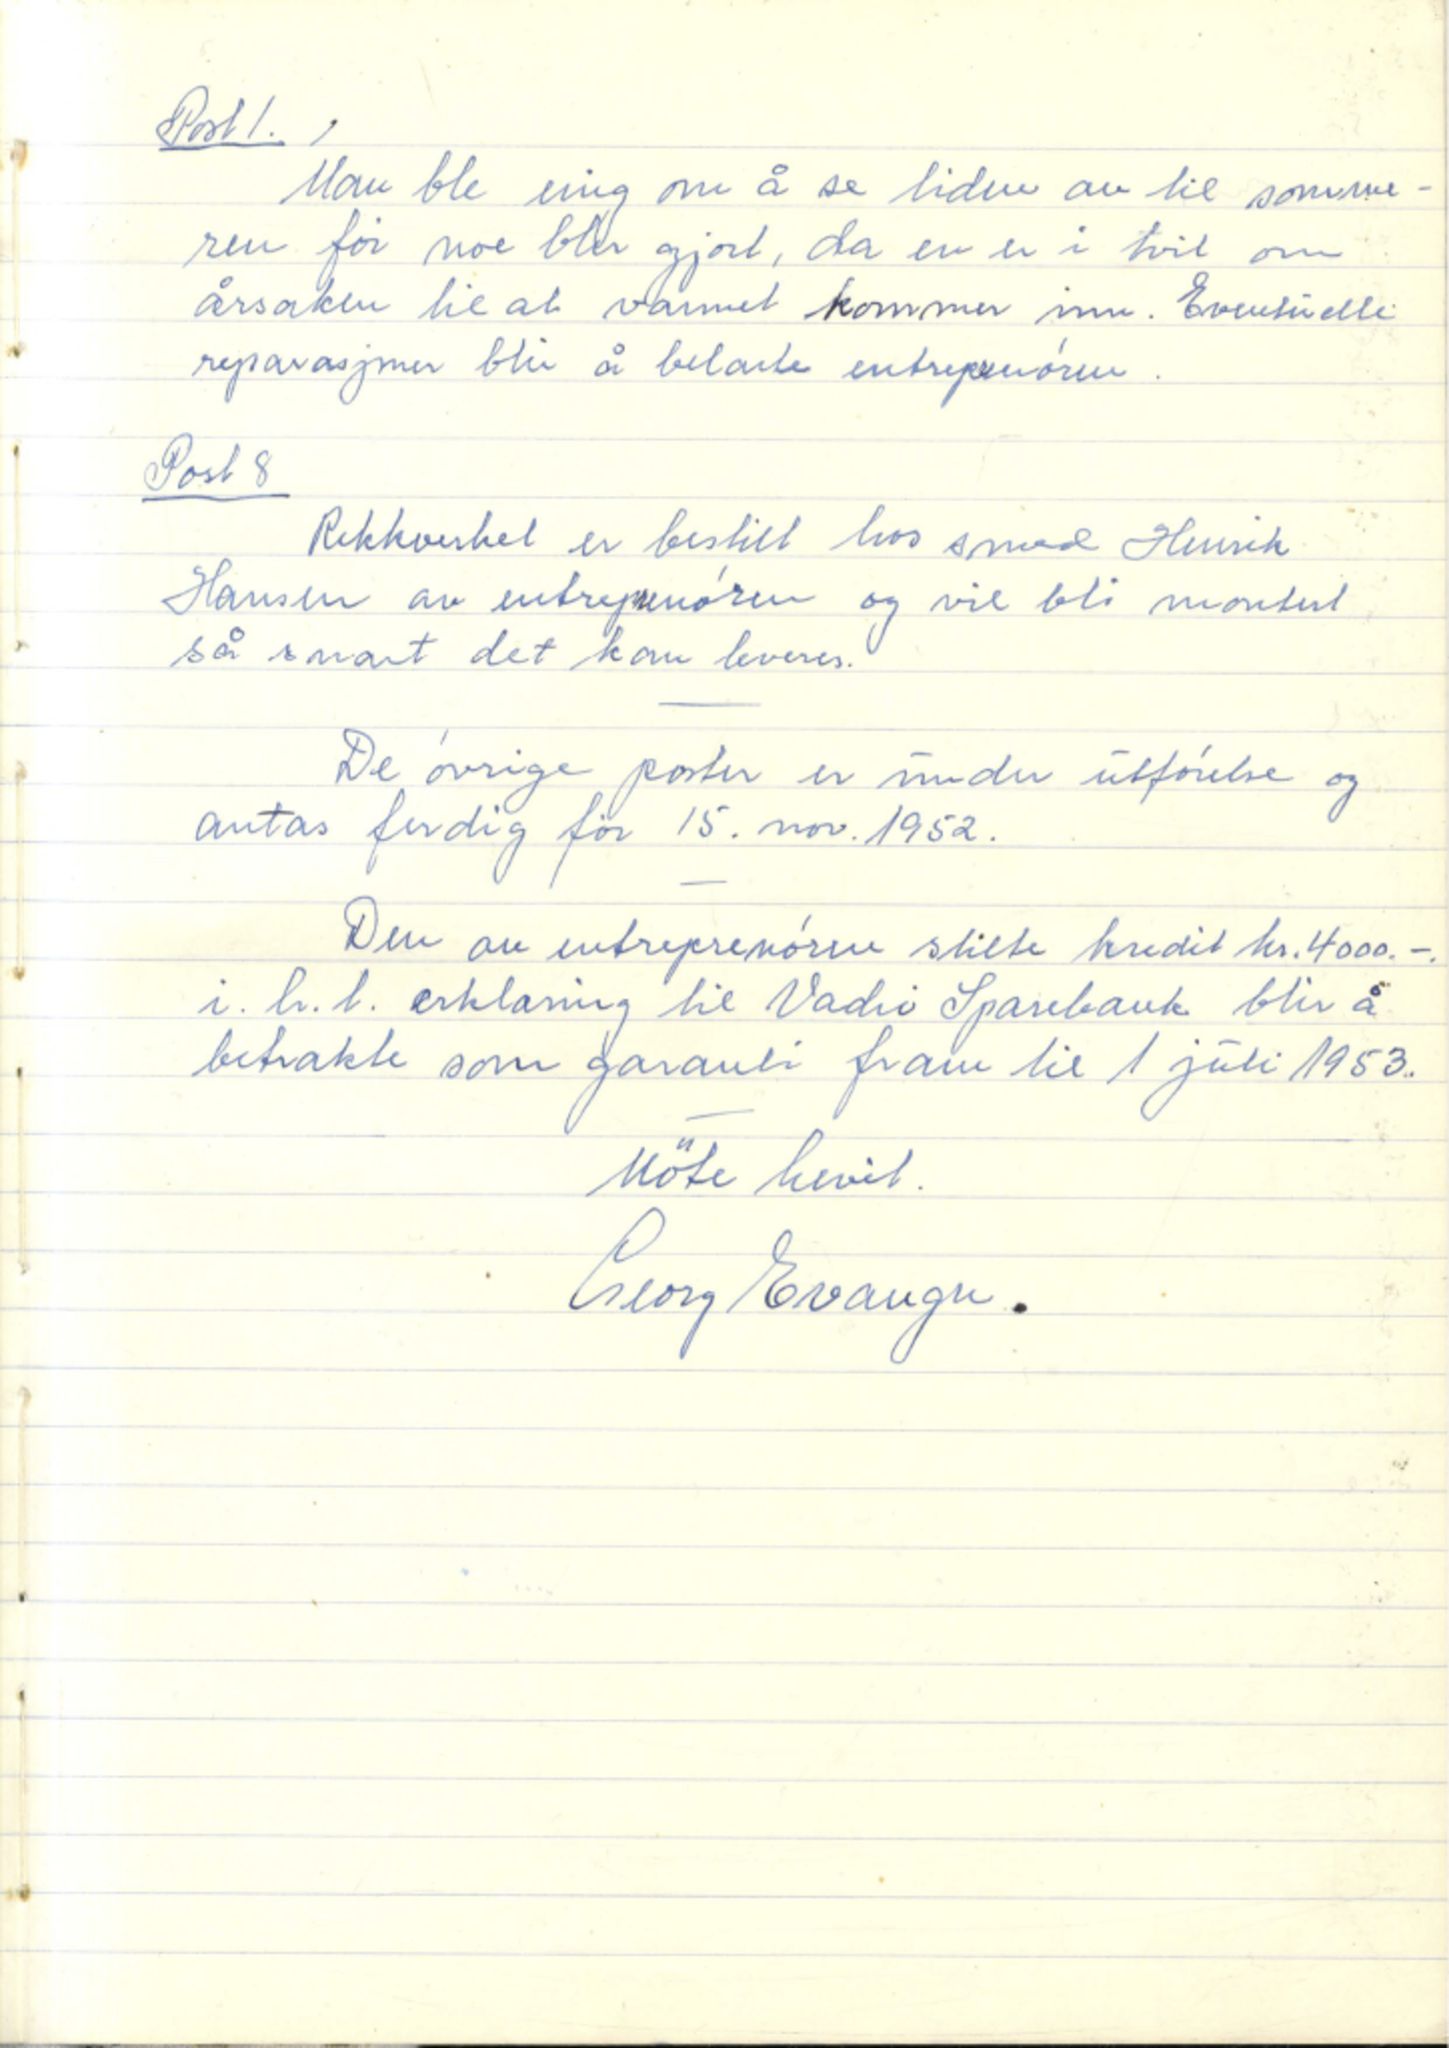 Post 1.
Man ble enig om å se tiden an til somme-
ren før noe blir gjort, da en er i tvil om
årsaken til at vannet kommer inn. Eventuelle
reparasjoner blir å belaste entreprenøren.
Post 8
Rekkverket er bestilt hos smed Henrik
Hansen av entreprenøren og vil bli montert
så snart det kan leveres.
De øvrige poster er under utførelse og
antas ferdig før 15. nov. 1952.
Den av entreprenøren stilte kredit kr. 4000.-.
i. h. t. erklæring til Vadsø Sparebank blir å
betrakte som garanti fram til 1 juli 1953.
Møte hevet.
Georg Evangn.